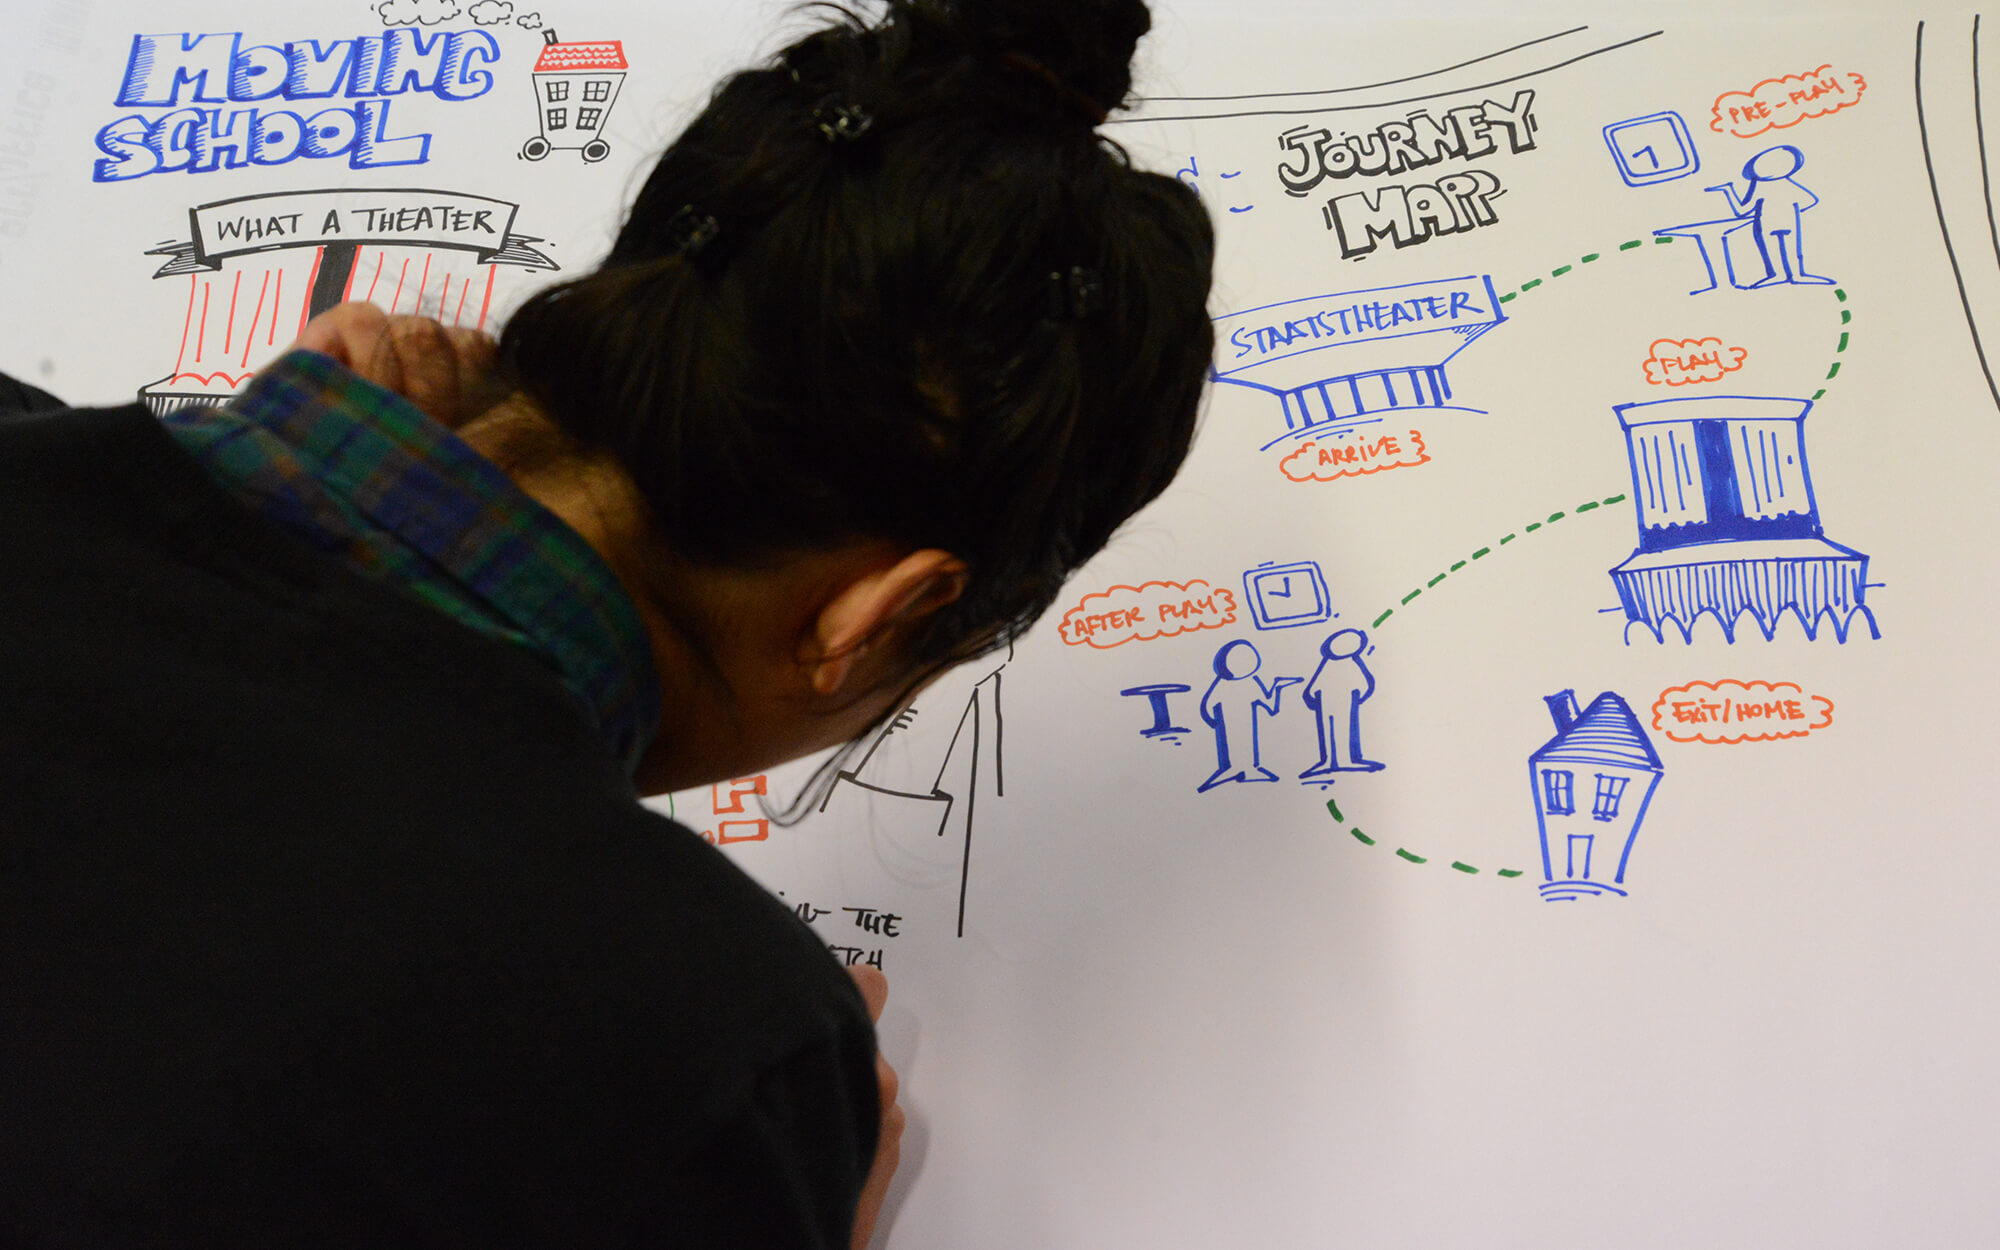 MOVING
SCHOOL
WHAT A THEATER
JOURNEY
MAPP
PRE-PLAY
STAATSTHEATER
ARRIVE
PLAY
AFTER PLAY
EXIT/HOME
THE